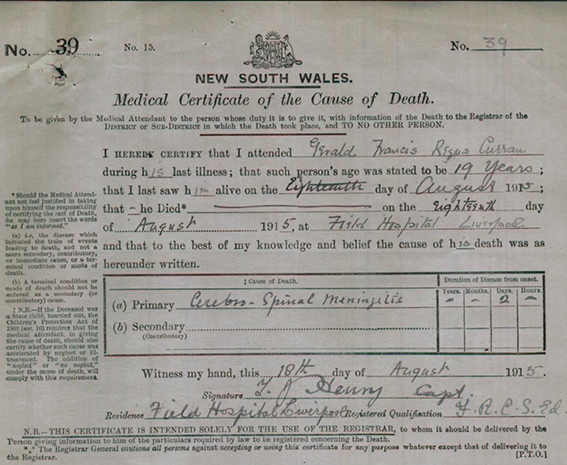 No. 39 No. 15. No. 39
NEW SOUTH WALES.
Medical Certificate of the Cause of Death.
To be given by the Medical Attendant to the person whose duty it is to give it, with information of the Death to the Registrar of the
DISTRICT or SUB-DISTRICT in which the Death took place, and TO NO OTHER PERSON.
I HEREBY CERTIFY that I attended Gerald Francis Curran
during his last illness; that such person's age was stated to be 19 Years;
that I last saw him alive on the Eighteenth day of August 1915;
that he Died* on the Eighteenth day
of August 1915, at Field Hospital Liverpool
and that to the best of my knowledge and belief the cause of his death was as
hereunder written.
*Should the Medical Attend-
ant not feel justified in taking
upon himself the responsibility
of certifying the fact of Death,
he may here insert the words
"as I am informed."
(a) i.e., the disease which
initiated the train of events
leading to death, and not a
mere secondary, contributory,
or immediate cause, or a ter-
minal condition or mode of
death.
(b) A terminal condition or
mode of death should not be
entered as a secondary (or
contributory) cause.
‡ N.B.—If the Deceased was
a State child, boarded out, the
Children's Protection Act of
1902 (sec. 10) requires that
the medical attendant, in giving
the cause of death, should also
certify whether such cause was
accelerated by neglect or ill-
treatment. The addition of
"neglect" or "no neglect,"
under the cause of death, will
comply with this requirement.
‡ Cause of Death. Duration of Disease from onset.
Years. Months. Days. Hours.
(a) Primary Cerebro-Spinal Meningitis - - 2 -
(b) Secondary
(Contributory)
Witness my hand, this 18th day of August 1915.
Signature T. J. Henry Capt
Residence Field Hospital Liverpool Registered Qualification F.R.C.S. Ed.
N.B.—THIS CERTIFICATE IS INTENDED SOLELY FOR THE USE OF THE REGISTRAR, to whom it should be delivered by the
Person giving information to him of the particulars required by law to be registered concerning the Death.
* The Registrar General cautions all persons against accepting or using this certificate for any purpose whatever except that of delivering it to
the Registrar. [P.T.O.]